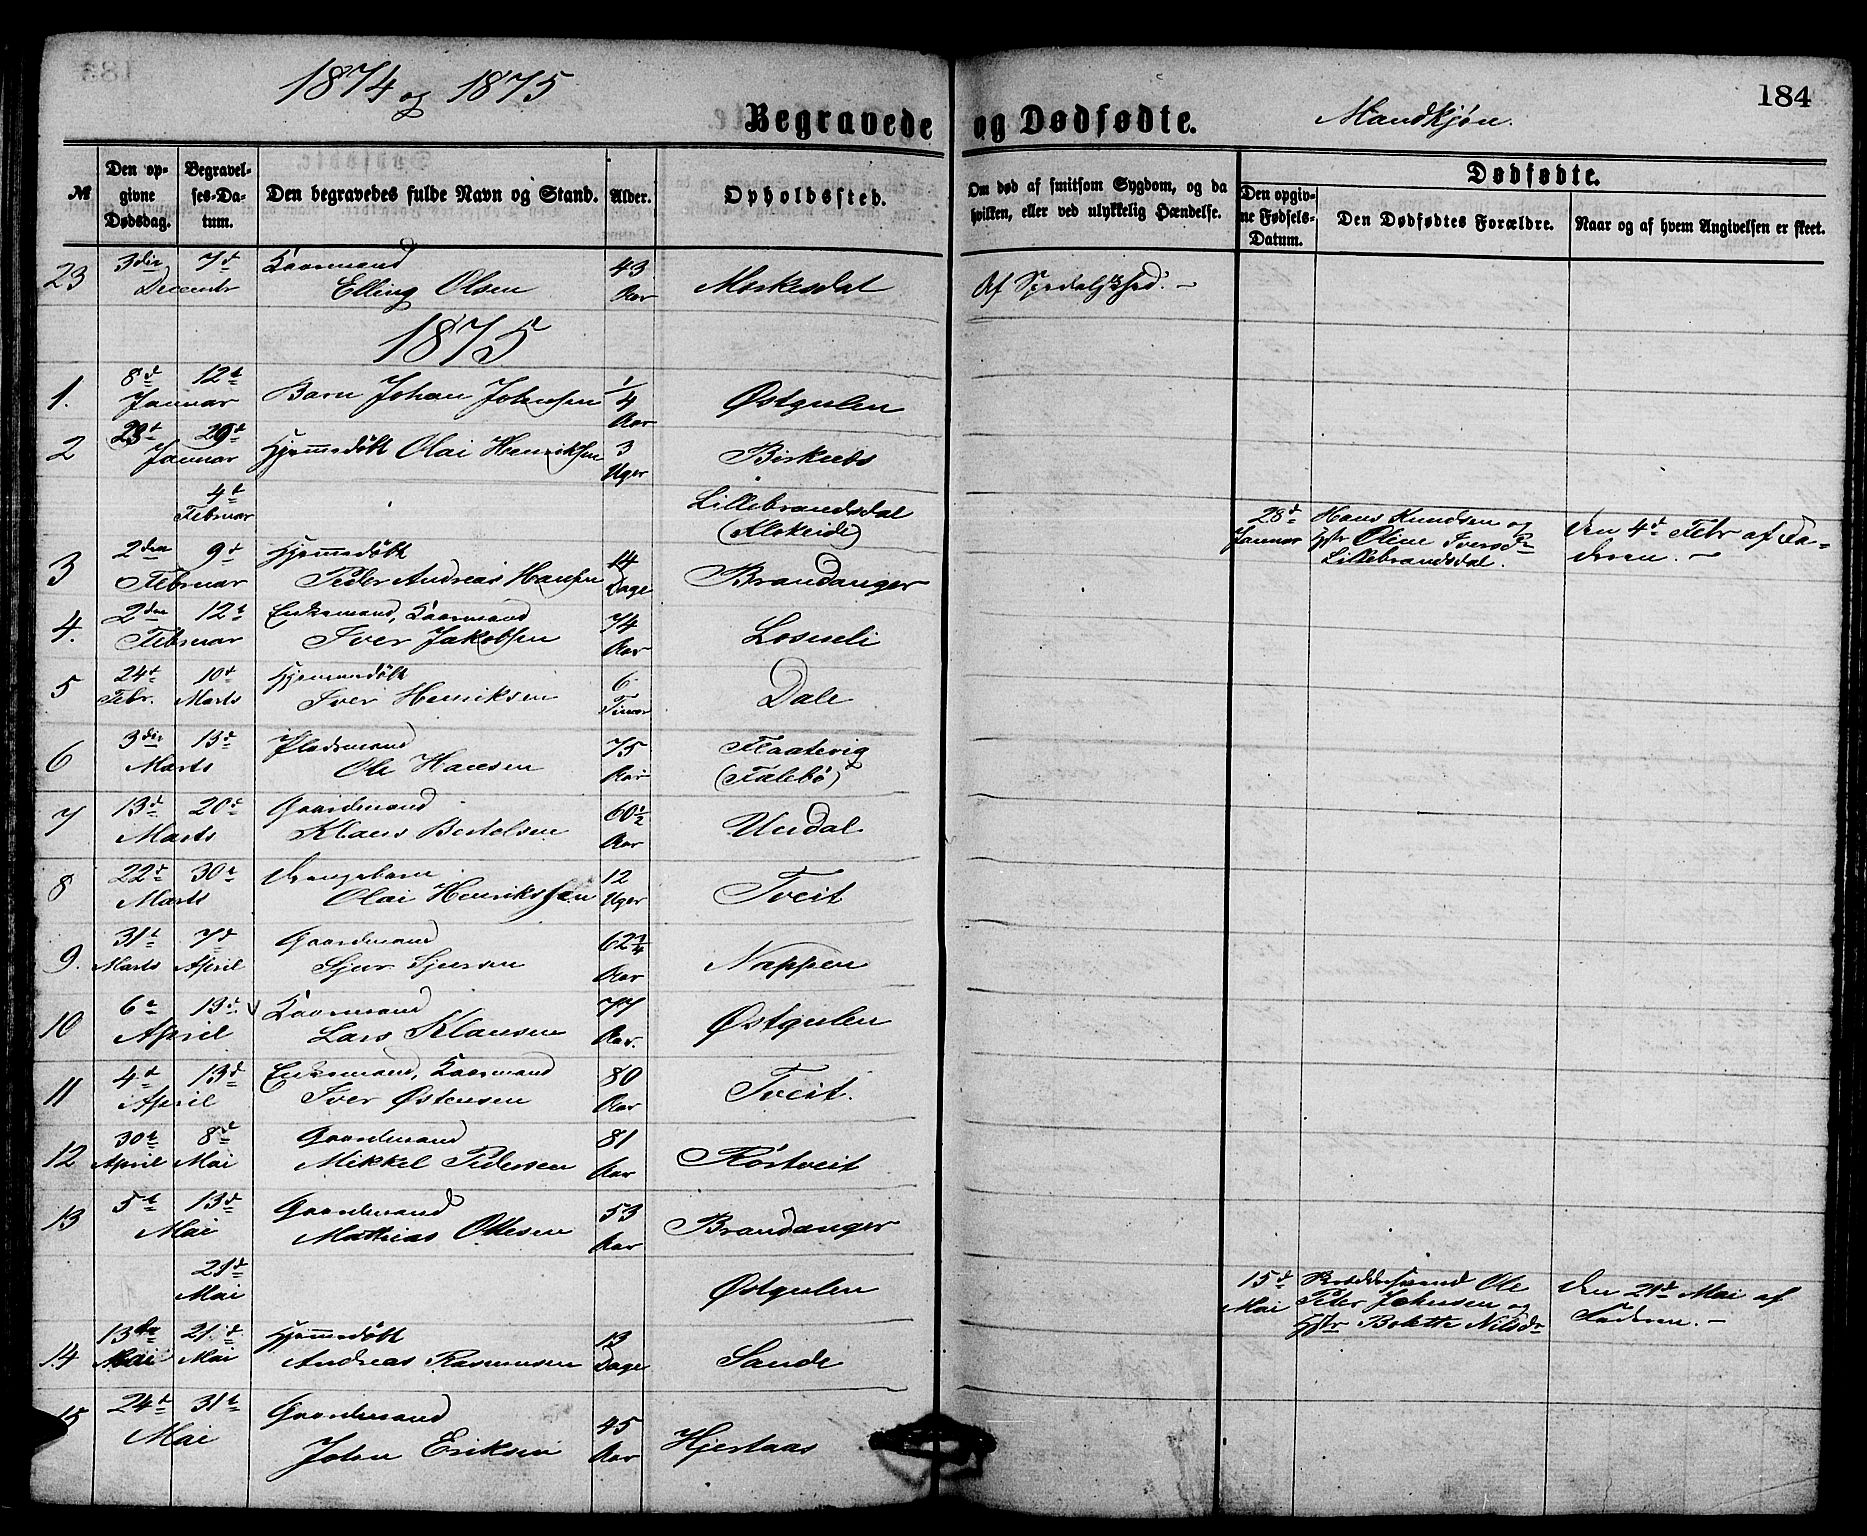 1874 og 1875
Begravede og Dødfødte.
Mandkjøn.
184
№
Den opgivne Dødsdag.
Begravelses-Datum.
Den begravedes fulde Navn og Stand.
Alder.
Opholdssted.
Om død af smitsom Sygdom, og da hvilken, eller ved ulykkelig Hændelse.
Dødfødte.
Den opgivne Fødsels-Datum.
Den Dødfødtes Forældre.
Naar og af hvem Angivelsen er skeet.
23 3die 7d December Kaarmand Elling Olsen 43 Aar Af Spedalskhed. -
1875
1. 8d 12te Januar Barn Johan Johnsen 1/4 Aar Østgulen
2 23de 29de Januar Hjemmedøbt Olai Henriksen 3 Uger Birkebø
4de Februar Lillebrandsdal (Klokeide) 28de Januar Hans Knudsen og Hstr Oline Iversd. Lillebrandsdal. Den 4de Febr af Faderen. -
3 2den 9de Februar Hjemmedøbt Peder Andreas Hansen 14 Dage Brandanger
4. 2den 12te Februar Enkemand, Kaarmand Iver Jakobsen 74 Aar
5 24de Febr. 10de Marts Hjemmedøbt Iver Henriksen 6 Timer Dale
6 3die 13de Marts Pladsmand Ole Hansen 75 Aar Flaatevig (Falebø)
7 13de 20de Marts Gaardmand Klaus Bertelsen 60 1/2 Aar
8 22de 30te Marts Drengebarn Olai Henrikssen 12 Uger Tveit
9. 31te Marts 7de April Gaardmand Sjur Sjursen 62 3/4 Aar Nappen
10 6te 13de April Kaarmand Lars Klausen 77 Aar. Østgulen
11 4de 13de April Enkemand, Kaarmand Iver Østensen 80 Aar Tveit.
12 30te April 8de Mai Gaardmand Mikkel Pedersen 81 Aar
13 5te 13de Mai Gaardmand Mathias Ottesen 53 Aar Brandanger
21de Mai Østgulen 15de Mai Ole Peter Johnsen og Hstr Bolette Nilsdr Den 21de Mai af Faderen. -
14 13de Mai 21de Mai Hjemmedøbt Andreas Rasmussen 13 Dage Sande
15 24de 31te Mai Gaardmand John Eriksen 45 Aar Hjertaas